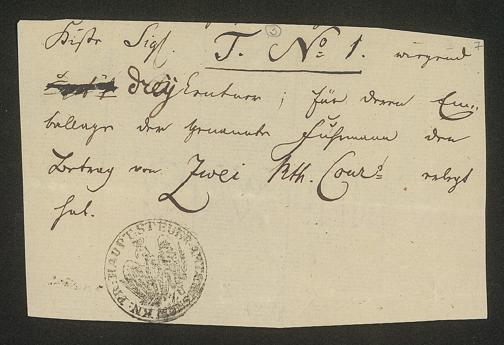 Kiste Sigl. T. No 1. wiegend
drey Centner; für deren Em=
ballage der genannte Fuhrmann den
Betrag von Zwei Rth. Cour. erlegt
hat.
KN: PR: HAUPT-STEUER-AMT